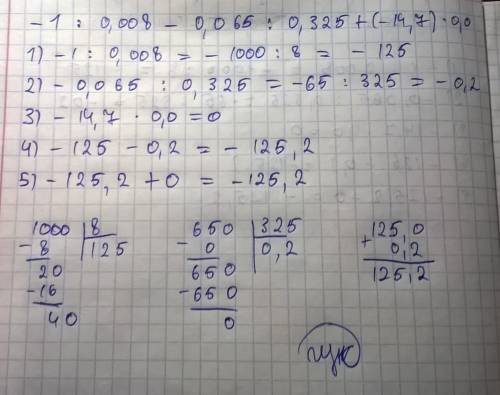 -1 : 0,008 - 0,065 : 0,325 + (-14,7) · 0,0
1) -1 : 0,008 = - 1000 : 8 = - 125
2) - 0,065 : 0,325 = -65 : 325 = - 0,2
3) - 14,7 · 0,0 = 0
4) - 125 - 0,2 = - 125,2
5) - 125,2 + 0 = - 125,2
1000 8
- 8 125
20
- 16
40
650 325
- 0 0,2
650
- 650
0
125,0
+ 0,2
125,2